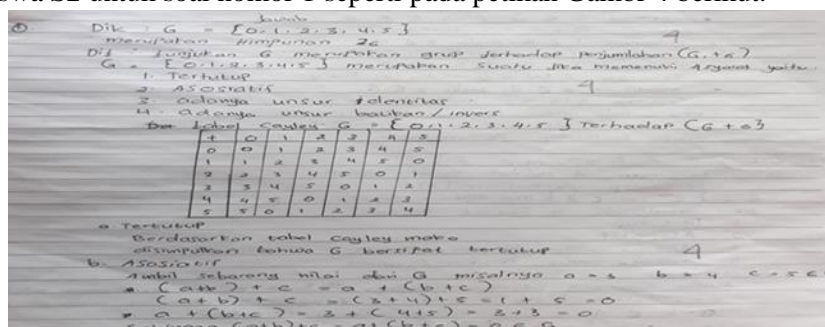 Jawab
① Dik : G = { 0, 1, 2, 3, 4, 5 }
merupakan Himpunan Z6
4
Dit : Tunjukan G merupakan grup terhadap penjumlahan (G, +6)
G = { 0, 1, 2, 3, 4, 5 } merupakan suatu jika memenuhi 4 syarat yaitu
1. Tertutup
2. ASosiatif
4
3. adanya unsur identitas
4. adanya unsur balikan / invers
Tabel Cayley G = { 0, 1, 2, 3, 4, 5 } Terhadap (G +6)
+ 0 1 2 3 4 5
0 0 1 2 3 4 5
1 1 2 3 4 5 0
2 2 3 4 5 0 1
3 3 4 5 0 1 2
4 4 5 0 1 2 3
5 5 0 1 2 3 4
a. Tertutup
Berdasarkan tabel Cayley maka
disimpulkan bahwa G bersifat tertutup
4
b. ASosiatif
Ambil sebarang nilai dari G misalnya a = 3 b = 4 c = 5 ∈
• (a+b) + c = a + (b+c)
(a+b) + c = (3+4)+5 = 1 + 5 = 0
• a + (b+c) = 3 + (4+5) = 3+3 = 0
(a+b)+c = a+(b+c) = 0 ∈ G